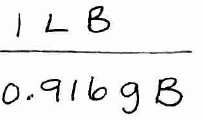 1 L B
0.916 g B